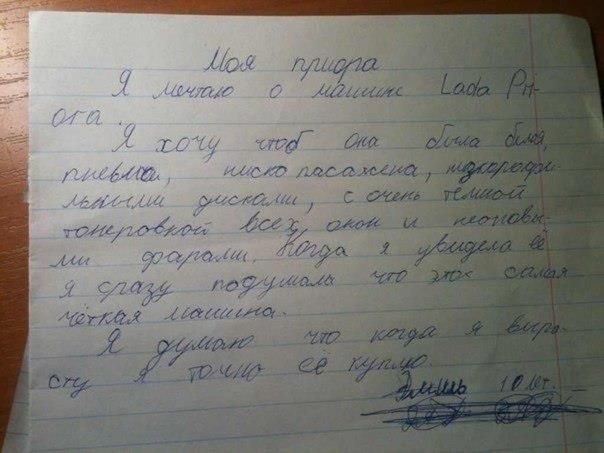 Моя приора
Я мечтаю о машине Lada Pri-
ora.
Я хочу чтоб она была белая,
пневма, ниско пасажена,
льными дисками, с очень тёмной
тонеровкой всех окон и неоновы-
ми фарами. Когда я увидела её
я сразу подумала что этох самая
чёткая машина.
Я думаю что когда я выра-
сту я точно её куплю.
Эмиль 10 лет.